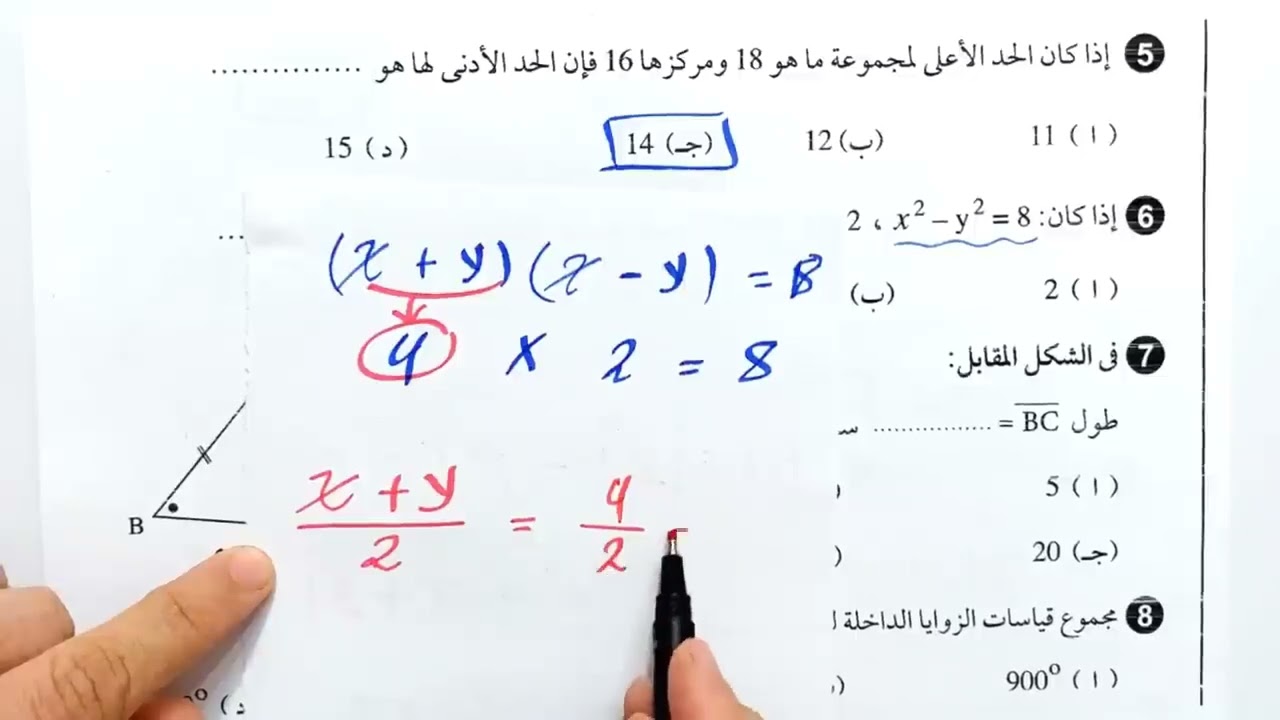 5 إذا كان الحد الأعلى لمجموعة ما هو 18 ومركزها 16 فإن الحد الأدنى لها هو ...............
( ا ) 11 (ب) 12 (جـ) 14 ( د ) 15
6 إذا كان: x² – y² = 8 ، 2
...
(x + y) (x - y) = 8
( ا ) 2 (ب)
4 × 2 = 8
7 فى الشكل المقابل:
طول BC = ................
( ا ) 5
x + y / 2 = 4 / 2
B
(جـ) 20
8 مجموع قياسات الزوايا الداخلة
( ا ) 900°
( د